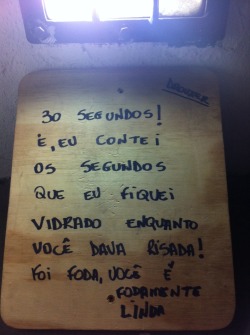 30 SEGUNDOS!
É, EU CONTEI
OS SEGUNDOS
QUE EU FIQUEI
VIDRADO ENQUANTO
VOCÊ DAVA RISADA!
FOI FODA, VOCÊ É
FODAMENTE
LINDA